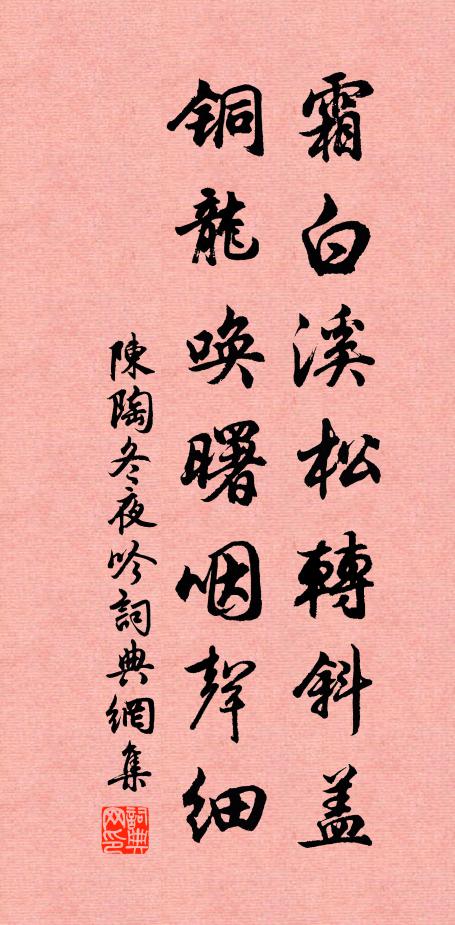 霜白溪松轉斜盖
銅龍唤曙咽聲細
陳陶冬夜吟詞典網集
詞典网印